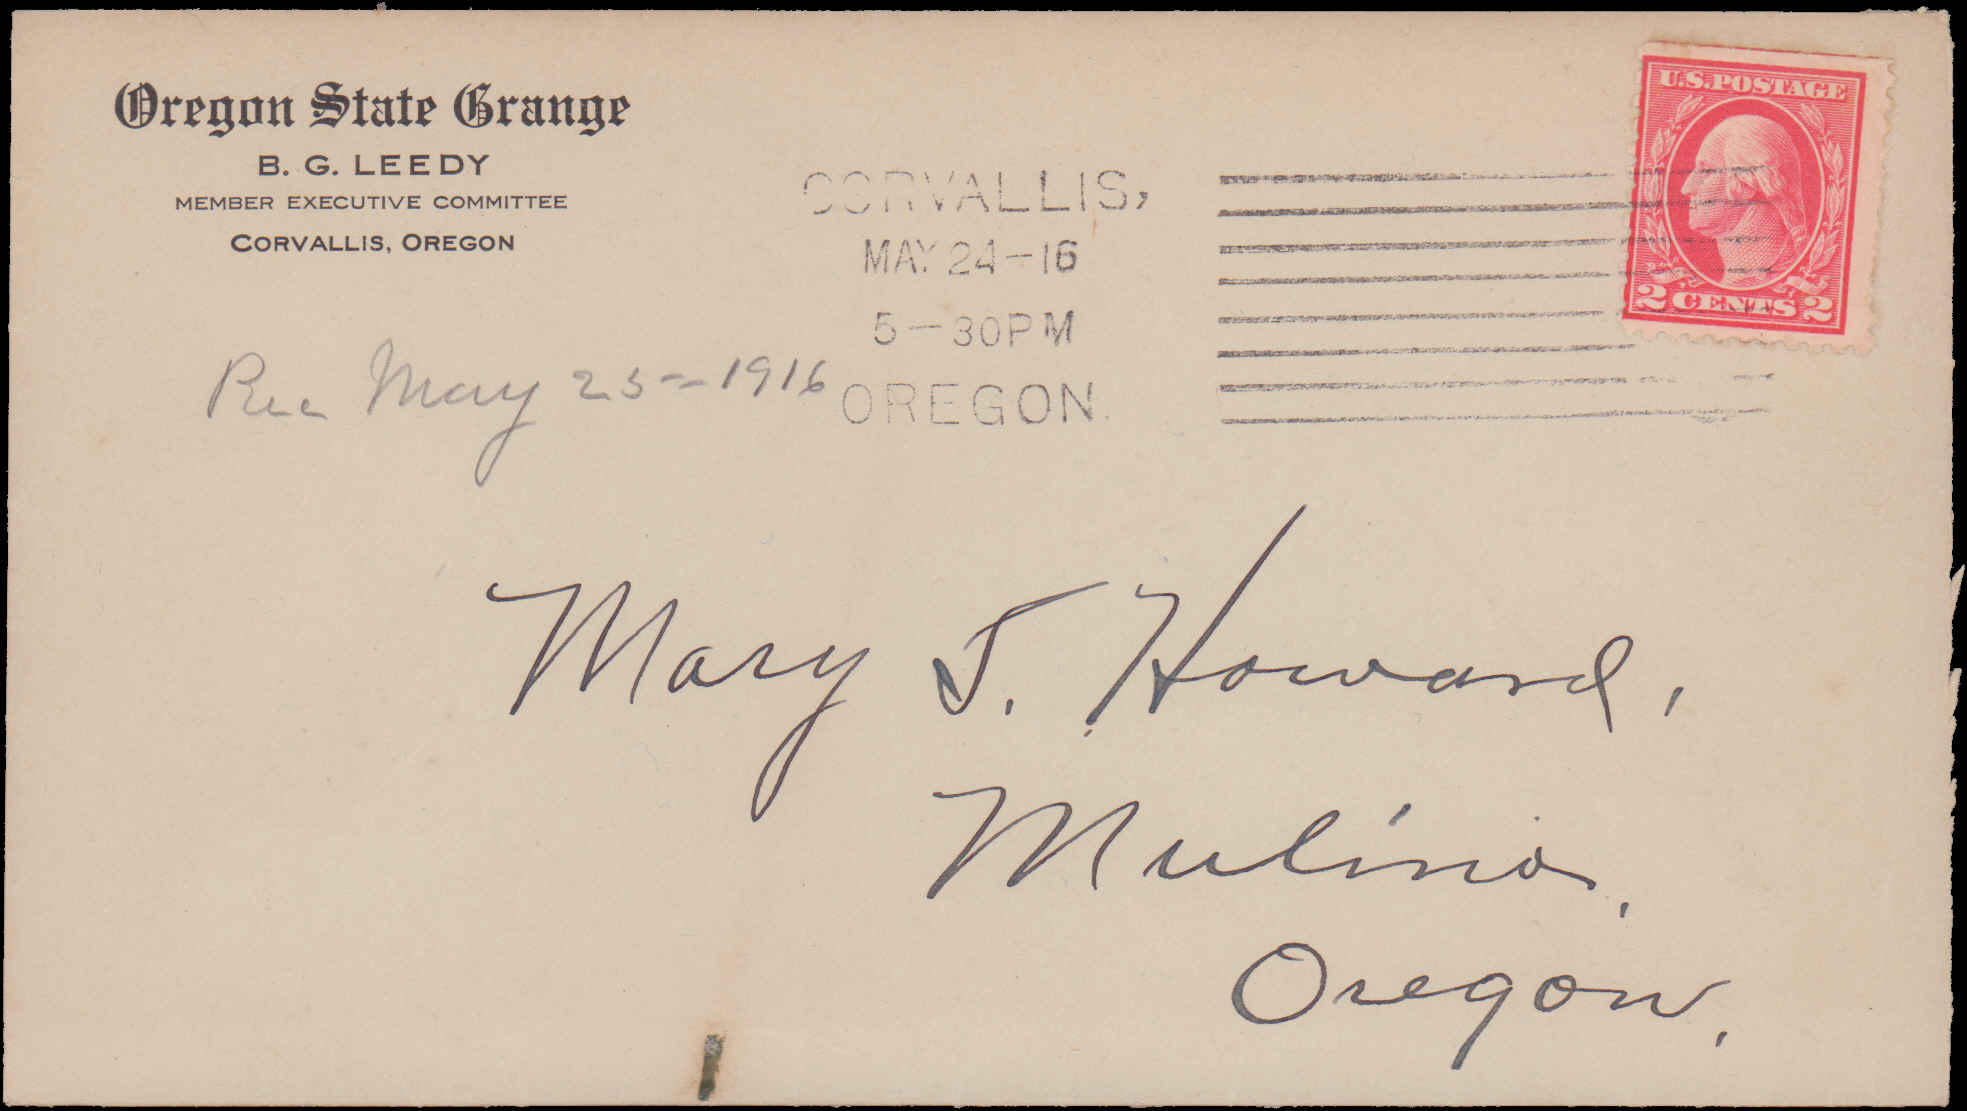 Oregon State Grange
B. G. LEEDY
MEMBER EXECUTIVE COMMITTEE
CORVALLIS, OREGON
CORVALLIS,
MAY 24-16
5-30PM
OREGON.
U.S. POSTAGE
2 CENTS 2
Rec May 25-1916
Mary J. Howard,
Mulino,
Oregon,